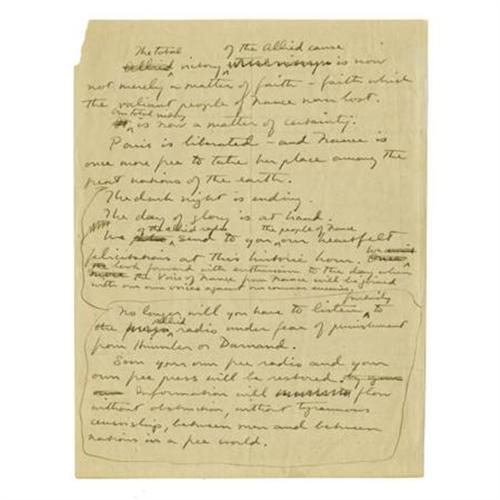 The total of the Allied cause
Allied victory is now
not merely a matter of faith – faith which
the valiant people of France never lost.
Our total victory
It is now a matter of certainty.
Paris is liberated – and France is
once more free to take her place among the
great nations of the earth.
The dark night is ending.
The day of glory is at hand.
of the Allied radio the people of France
We send to you, our heartfelt
felicitations at this historic hour. We
look forward with enthusiasm to the day when
the Voice of France from France will be joined
with our own voices against our common enemy.
furtively
No longer will you have to listen to
allied
the press radio under fear of punishment
from Himmler or Darnand.
Soon your own free radio and your
own free press will be restored.
Information will flow
without obstruction, without tyrannous
censorship, between men and between
nations in a free world.